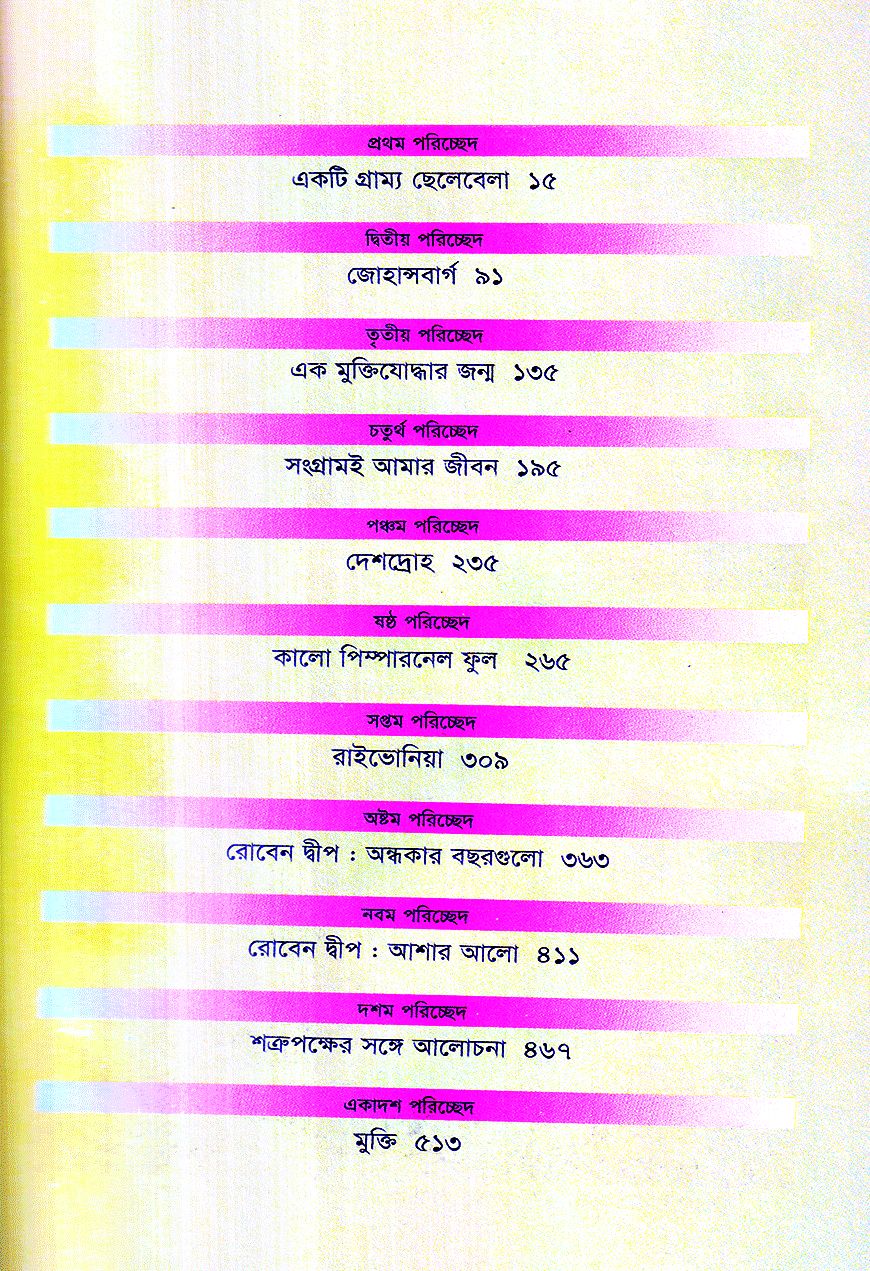 প্রথম পরিচ্ছেদ
একটি গ্রাম্য ছেলেবেলা ১৫
দ্বিতীয় পরিচ্ছেদ
জোহান্সবার্গ ৯১
তৃতীয় পরিচ্ছেদ
এক মুক্তিযোদ্ধার জন্ম ১৩৫
চতুর্থ পরিচ্ছেদ
সংগ্রামই আমার জীবন ১৯৫
পঞ্চম পরিচ্ছেদ
দেশদ্রোহ ২৩৫
ষষ্ঠ পরিচ্ছেদ
কালো পিম্পারনেল ফুল ২৬৫
সপ্তম পরিচ্ছেদ
রাইভোনিয়া ৩০৯
অষ্টম পরিচ্ছেদ
রোবেন দ্বীপ : অন্ধকার বছরগুলো ৩৬৩
নবম পরিচ্ছেদ
রোবেন দ্বীপ : আশার আলো ৪১১
দশম পরিচ্ছেদ
শত্রুপক্ষের সঙ্গে আলোচনা ৪৬৭
একাদশ পরিচ্ছেদ
মুক্তি ৫১৩